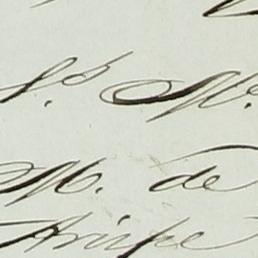 S.r D.n M.
M. de
Arispe